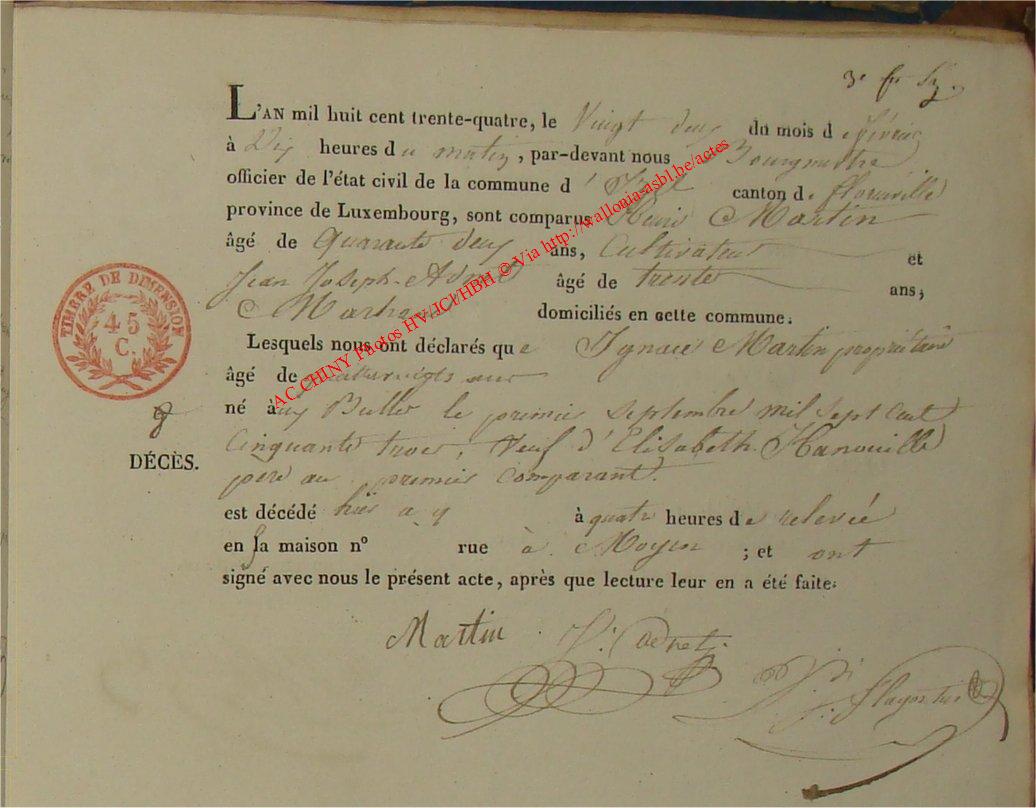 L'AN mil huit cent trente-quatre, le Vingt deux du mois de février
à Dix heures du matin, par-devant nous Bourgmestre
officier de l'état civil de la commune d' canton de florenville
province de Luxembourg, sont comparus Henri Martin
âgé de Quarante deux ans, Cultivateur et
Jean Joseph âgé de trente ans;
domiciliés en cette commune.
Lesquels nous ont déclarés que Ignace Martin propriétaire
âgé de quatrevingts ans
né à Bulles le premier septembre mil sept cent
Cinquante trois, Veuf d'Elisabeth Hanouille
père au premier comparant.
est décédé hier à quatre heures de relevée
en sa maison n° rue à Moyen ; et ont
signé avec nous le présent acte, après que lecture leur en a été faite.
DÉCÈS.
TIMBRE DE DIMENSION
45
C.
AC CHINY Photos HV-JCI/HBH © Via http://wallonia-asbl.be/actes
Martin